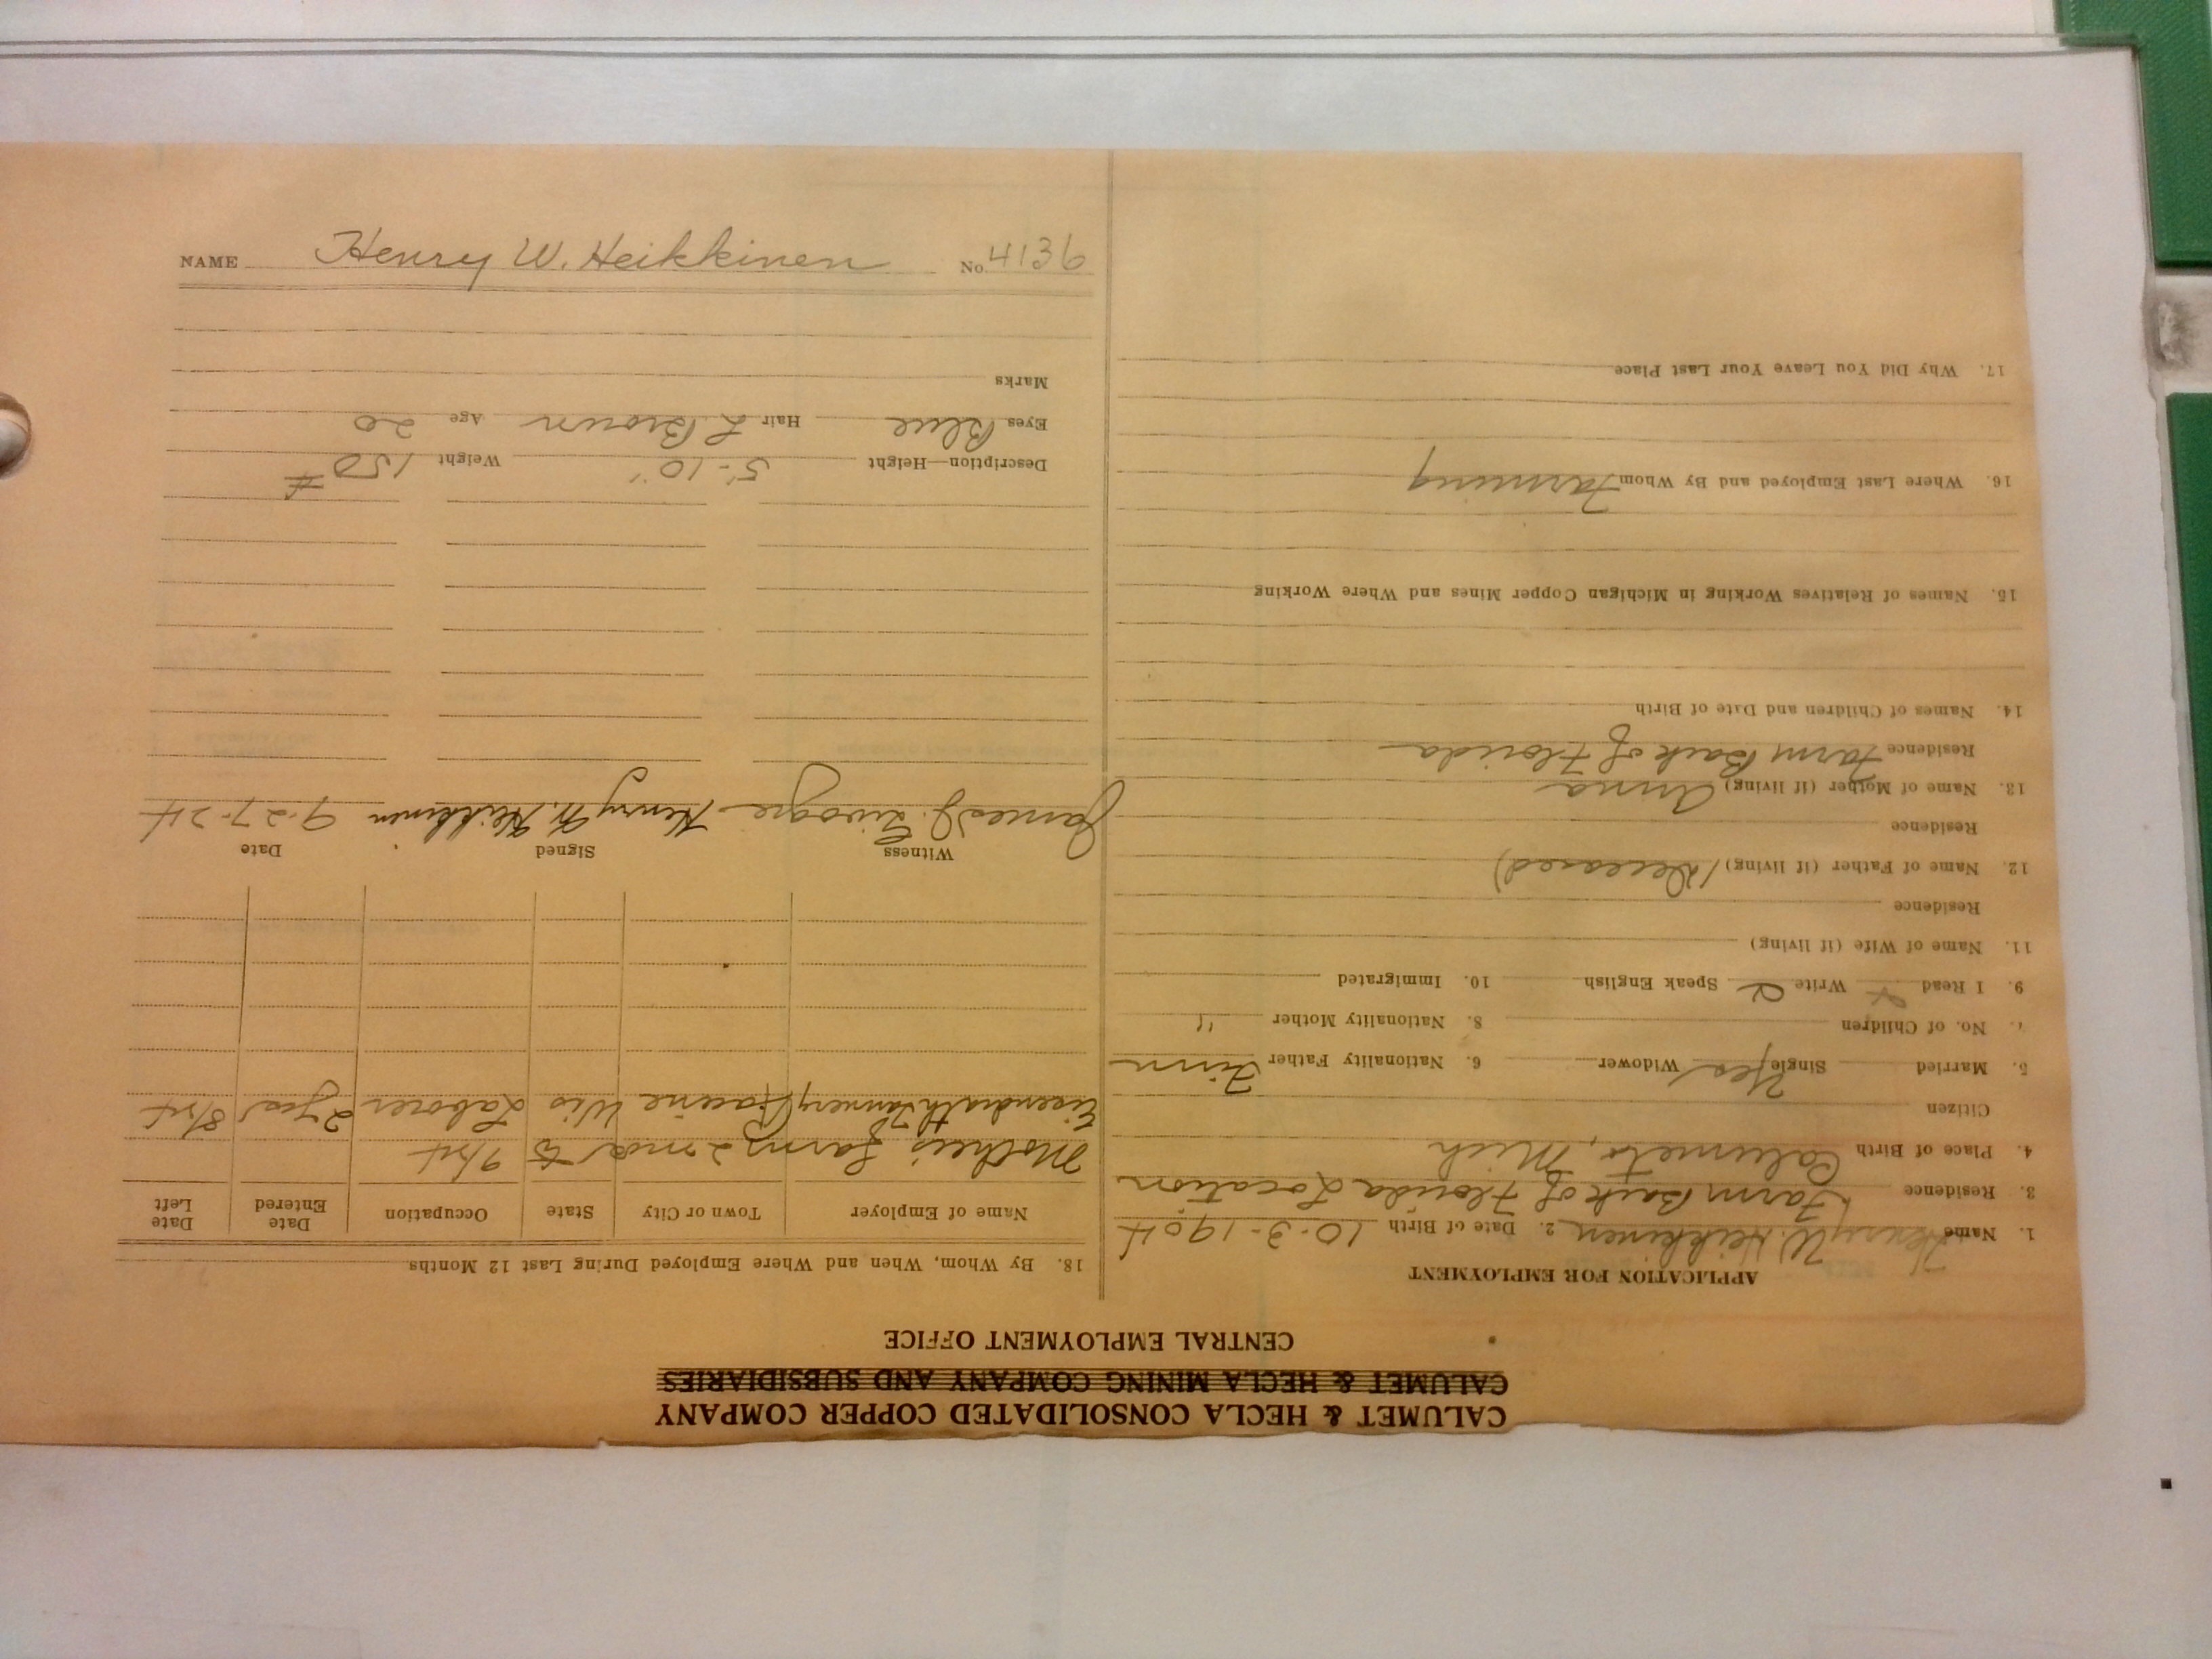 CALUMET & HECLA CONSOLIDATED COPPER COMPANY
CALUMET & HECLA MINING COMPANY AND SUBSIDIARIES
CENTRAL EMPLOYMENT OFFICE
APPLICATION FOR EMPLOYMENT
1. Name Henry W. Heikkinen 2. Date of Birth 10-3-1904
3. Residence Farm Back of Florida Location
4. Place of Birth Calumet, Mich
Citizen
5. Married Single Yes Widower 6. Nationality Father Finn
7. No. of Children 8. Nationality Mother "
9. I Read Write Speak English 10. Immigrated
11. Name of Wife (if living)
Residence
12. Name of Father (if living) (Deceased)
Residence
13. Name of Mother (if living) Anna
Residence Farm Back of Florida
14. Names of Children and Date of Birth
15. Names of Relatives Working in Michigan Copper Mines and Where Working
16. Where Last Employed and By Whom Farming
17. Why Did You Leave Your Last Place
18. By Whom, When and Where Employed During Last 12 Months
Name of Employer Town or City State Occupation Date Entered Date Left
Mothers farm 2 mos to 9/24
Eisendrath Tannery Racine Wis Laborer 2 yrs 8/24
Witness Signed Date
James J. Henry W. Heikkinen 9-27-24
Description—Height 5'-10" Weight 150 #
Eyes Blue Hair L. Brown Age 20
Marks
NAME Henry W. Heikkinen No. 4136